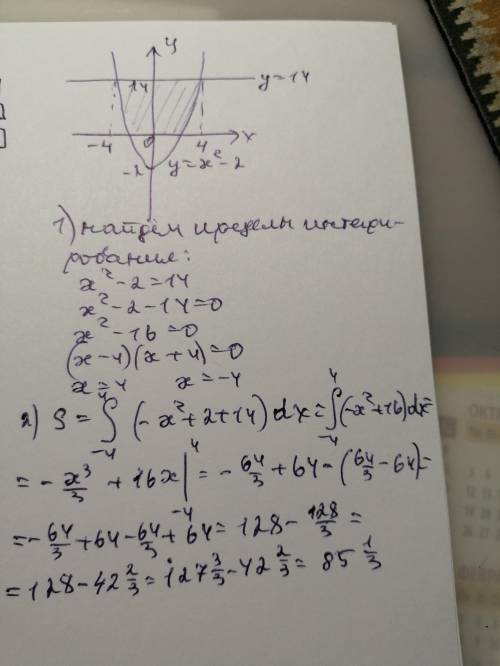 y
y = 14
14
-4 0 4 x
-2 y = x² - 2
1) найдём пределы интегри-
рование:
x² - 2 = 14
x² - 2 - 14 = 0
x² - 16 = 0
(x - 4)(x + 4) = 0
x = 4 x = -4
2) S = ∫₋₄⁴ (-x² + 2 + 14) dx = ∫₋₄⁴ (-x² + 16) dx =
= - x³/3 + 16x |₋₄⁴ = - 64/3 + 64 - (64/3 - 64) =
= - 64/3 + 64 - 64/3 + 64 = 128 - 128/3 =
= 128 - 42 2/3 = 127 3/3 - 42 2/3 = 85 1/3